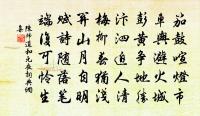 茄鼓喧燈市
車輿避火城
彭黃爭地勝
汴泗迫人清
梅柳春猶淺
關山月自明
賦詩隨落筆
端復可憐生
陳師道和元夜